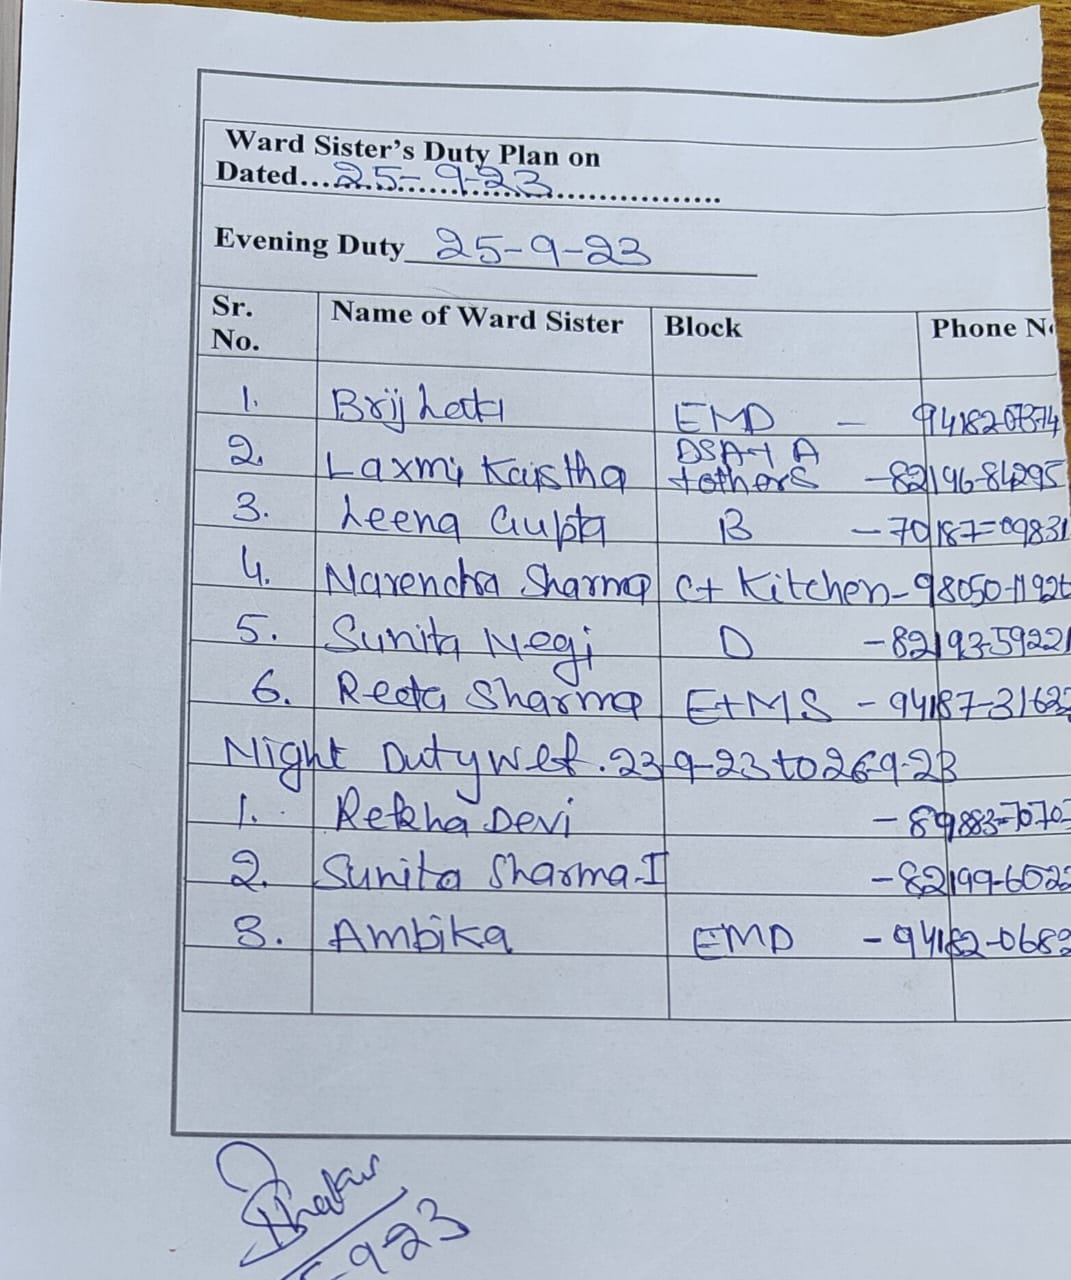 Ward Sister's Duty Plan on
Dated...25-9-23...
Evening Duty 25-9-23
Sr. No. Name of Ward Sister Block Phone N
1. Brij Lata EMD - 94182-07374
2. Laxmi Kaistha DSA+ A + others -82196-84295
3. Leena Gupta B -70187-09831
4. Narendra Sharma C+ Kitchen-98050-1192
5. Sunita Negi D -82193-59221
6. Reeta Sharma E+MS - 94187-3163
Night Duty wef. 23-9-23 to 26-9-23
1. Rekha Devi -89883-7070
2. Sunita Sharma-I -82199-602
3. Ambika EMD -94182-068
Thakur
-9-23